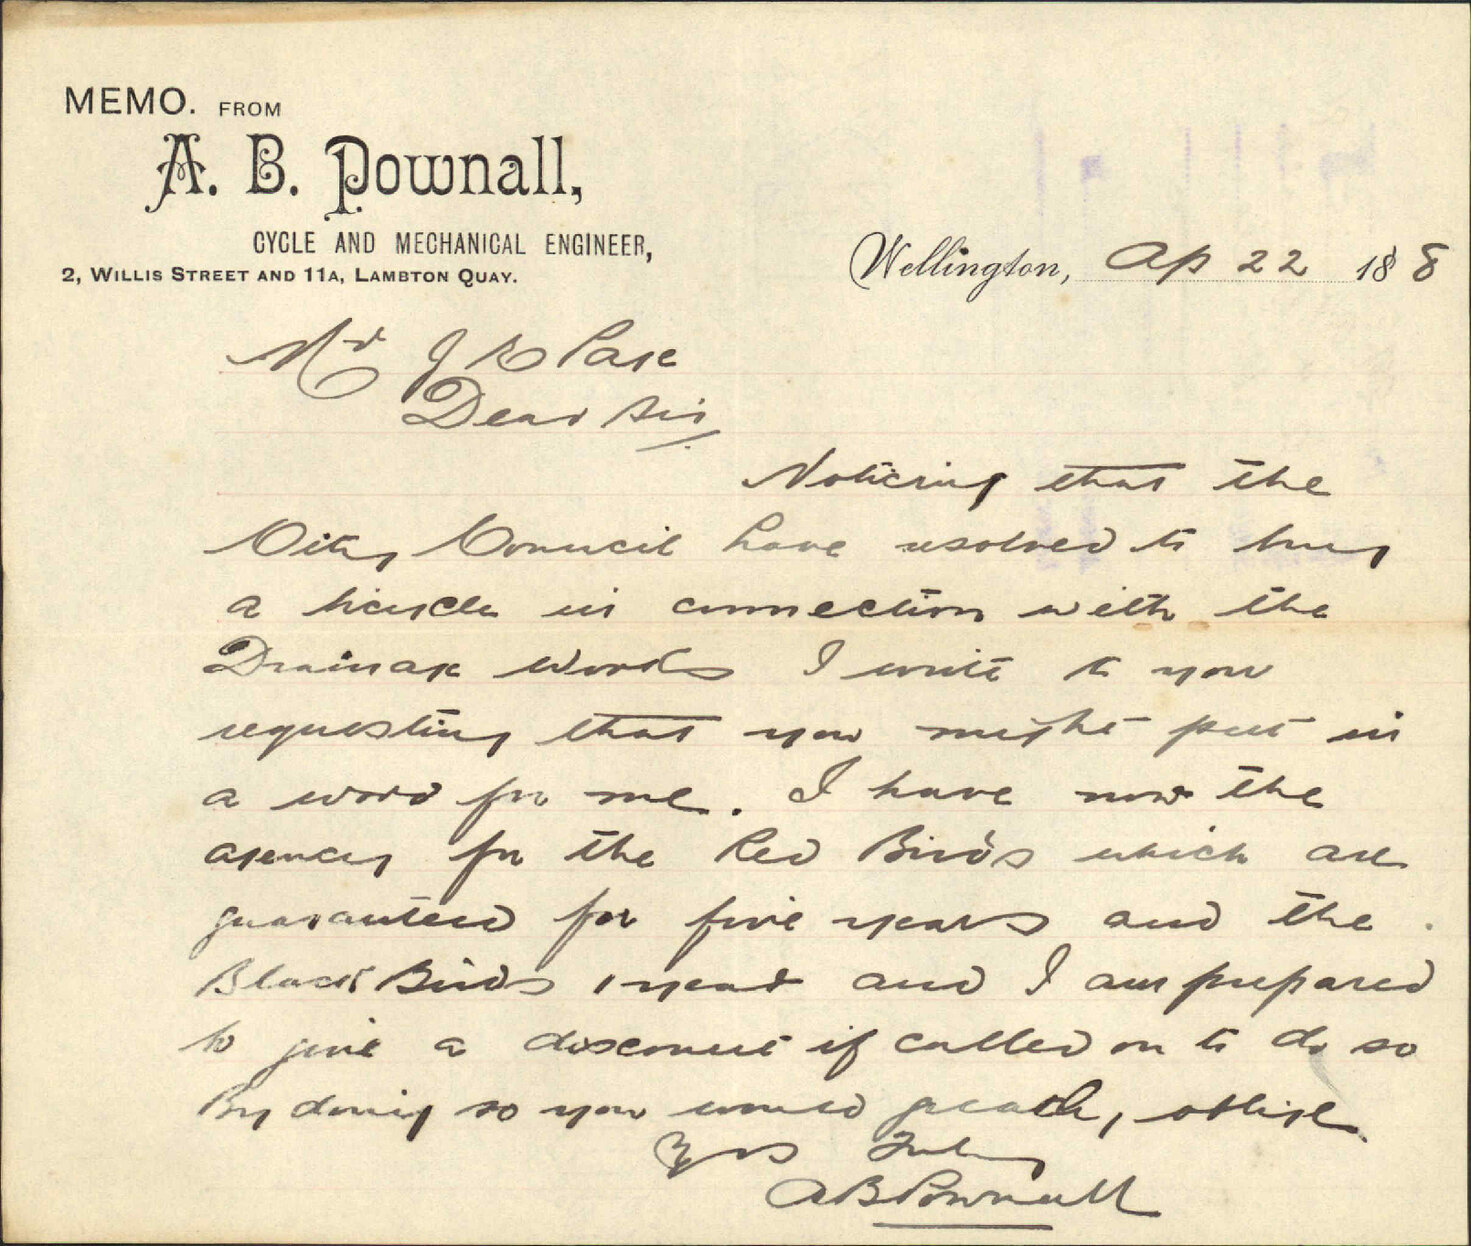 MEMO. FROM
A. B. Pownall,
CYCLE AND MECHANICAL ENGINEER,
2, WILLIS STREET AND 11A, LAMBTON QUAY.
Wellington, Ap 22 188
Mr J Page
Dear Sir,
Noticing that the
City Council have resolved to buy
a bicycle in connection with the
Drainage Works I write to you
requesting that you might put in
a word for me. I have now the
agency for the Red Birds which are
guaranteed for five years and the
Black Birds 1 year and I am prepared
to give a discount if called on to do so
By doing so you would greatly oblige.
Yrs Truly
AB Pownall